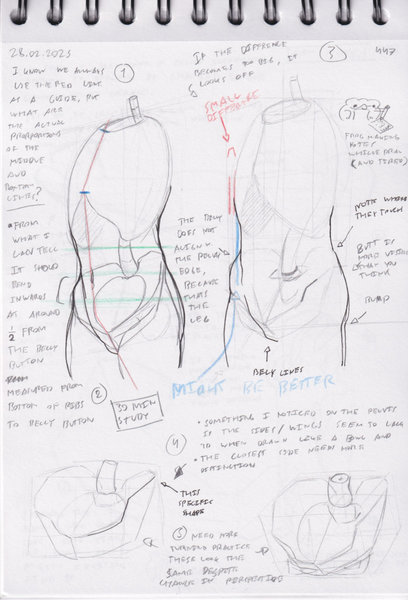 28.02.2023
1
I KNOW WE ALWAYS
USE THE RED LINE
AS A GUIDE, BUT
WHAT ARE
THE ACTUAL
PROPORTIONS
OF THE
MIDDLE
AND
BOTTOM
LINES?
• FROM
WHAT I
CAN TELL
IT SHOULD
BEND
INWARDS
AT AROUND
1/2 FROM
THE BELLY
BUTTON
MEASURED FROM
BOTTOM OF RIBS
TO BELLY BUTTON
2
30 MIN
STUDY
IF THE DIFFERENCE
BECOMES TOO BIG, IT
LOOKS OFF
3
SMALL
DIFFERENCE
FROG MAKING
NOTES
WHILE
(AND TIRED)
THE BELLY
DOES NOT
ALIGN W
THE PELVIS
EDGE,
BECAUSE
THAT'S
THE
LEG
NOTE WHERE
THEY TOUCH
BUTT IS
MORE VISIBLE
THAN YOU
THINK
BUMP
BELLY LINES
MIGHT BE BETTER
4
• SOMETHING I NOTICED ON THE PELVIS
IF THE SIDES/WINGS SEEM TO LACK
3D WHEN DRAWN LIKE A BOWL AND
DISTINCTION
• THE CLOSEST SIDE NEEDS MORE
THIS
SPECIFIC
SHAPE
5
NEED MORE
TURNING PRACTICE
THESE LOOK THE
SAME DESPITE
CHANGE IN PERSPECTIVE